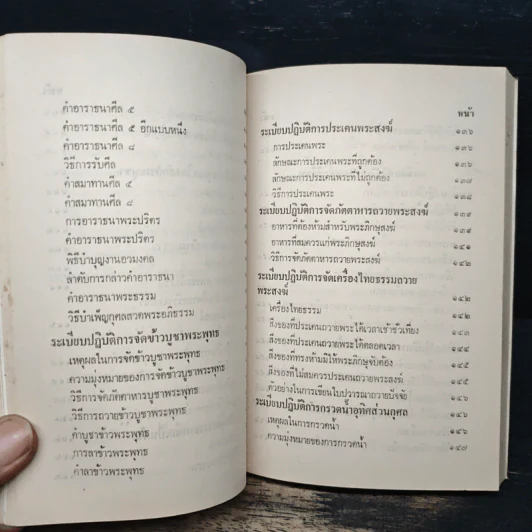 คำอาราธนาศีล ๕
คำอาราธนาศีล ๕ อีกแบบหนึ่ง
คำอาราธนาศีล ๘
วิธีการรับศีล
คำสมาทานศีล ๕
คำสมาทานศีล ๘
การอาราธนาพระปริตร
คำอาราธนาพระปริตร
พิธีบำบุญงานอวมงคล
ลำดับการกล่าวคำอาราธนา
คำอาราธนาพระธรรม
วิธีบำเพ็ญกุศลสวดพระอภิธรรม
ระเบียบปฏิบัติการจัดข้าวบูชาพระพุทธ
เหตุผลในการจัดข้าวบูชาพระพุทธ
ความมุ่งหมายของการจัดข้าวบูชาพระพุทธ
วิธีการจัดภัตตาหารบูชาพระพุทธ
วิธีการถวายข้าวบูชาพระพุทธ
คำบูชาข้าวพระพุทธ
การลาข้าวพระพุทธ
คำลาข้าวพระพุทธ
หน้า
ระเบียบปฏิบัติการประเคนพระสงฆ์ ๑๓๖
การประเคนพระ ๑๓๖
ลักษณะการประเคนพระที่ถูกต้อง ๑๓๖
ลักษณะการประเคนพระที่ไม่ถูกต้อง ๑๓๘
วิธีการประเคนพระ ๑๓๘
ระเบียบปฏิบัติการจัดภัตตาหารถวายพระสงฆ์ ๑๓๙
อาหารที่ต้องห้ามสำหรับพระภิกษุสงฆ์ ๑๓๙
อาหารที่สมควรแก่พระภิกษุสงฆ์ ๑๔๑
วิธีการจัดภัตตาหารถวายพระสงฆ์ ๑๔๒
ระเบียบปฏิบัติการจัดเครื่องไทยธรรมถวาย
พระสงฆ์ ๑๔๒
เครื่องไทยธรรม ๑๔๒
สิ่งของที่ประเคนถวายพระได้เวลาเช้าชั่วเที่ยง ๑๔๔
สิ่งของที่ประเคนถวายพระได้ตลอดเวลา ๑๔๔
สิ่งของที่ทรงห้ามมิให้พระภิกษุจับต้อง ๑๔๕
สิ่งของที่ไม่สมควรประเคนถวายพระสงฆ์ ๑๔๕
ตัวอย่างในการเขียนใบปวารณาถวายปัจจัย ๑๔๖
ระเบียบปฏิบัติการกรวดน้ำอุทิศส่วนกุศล ๑๔๖
เหตุผลในการกรวดน้ำ ๑๔๖
ความมุ่งหมายของการกรวดน้ำ ๑๔๙